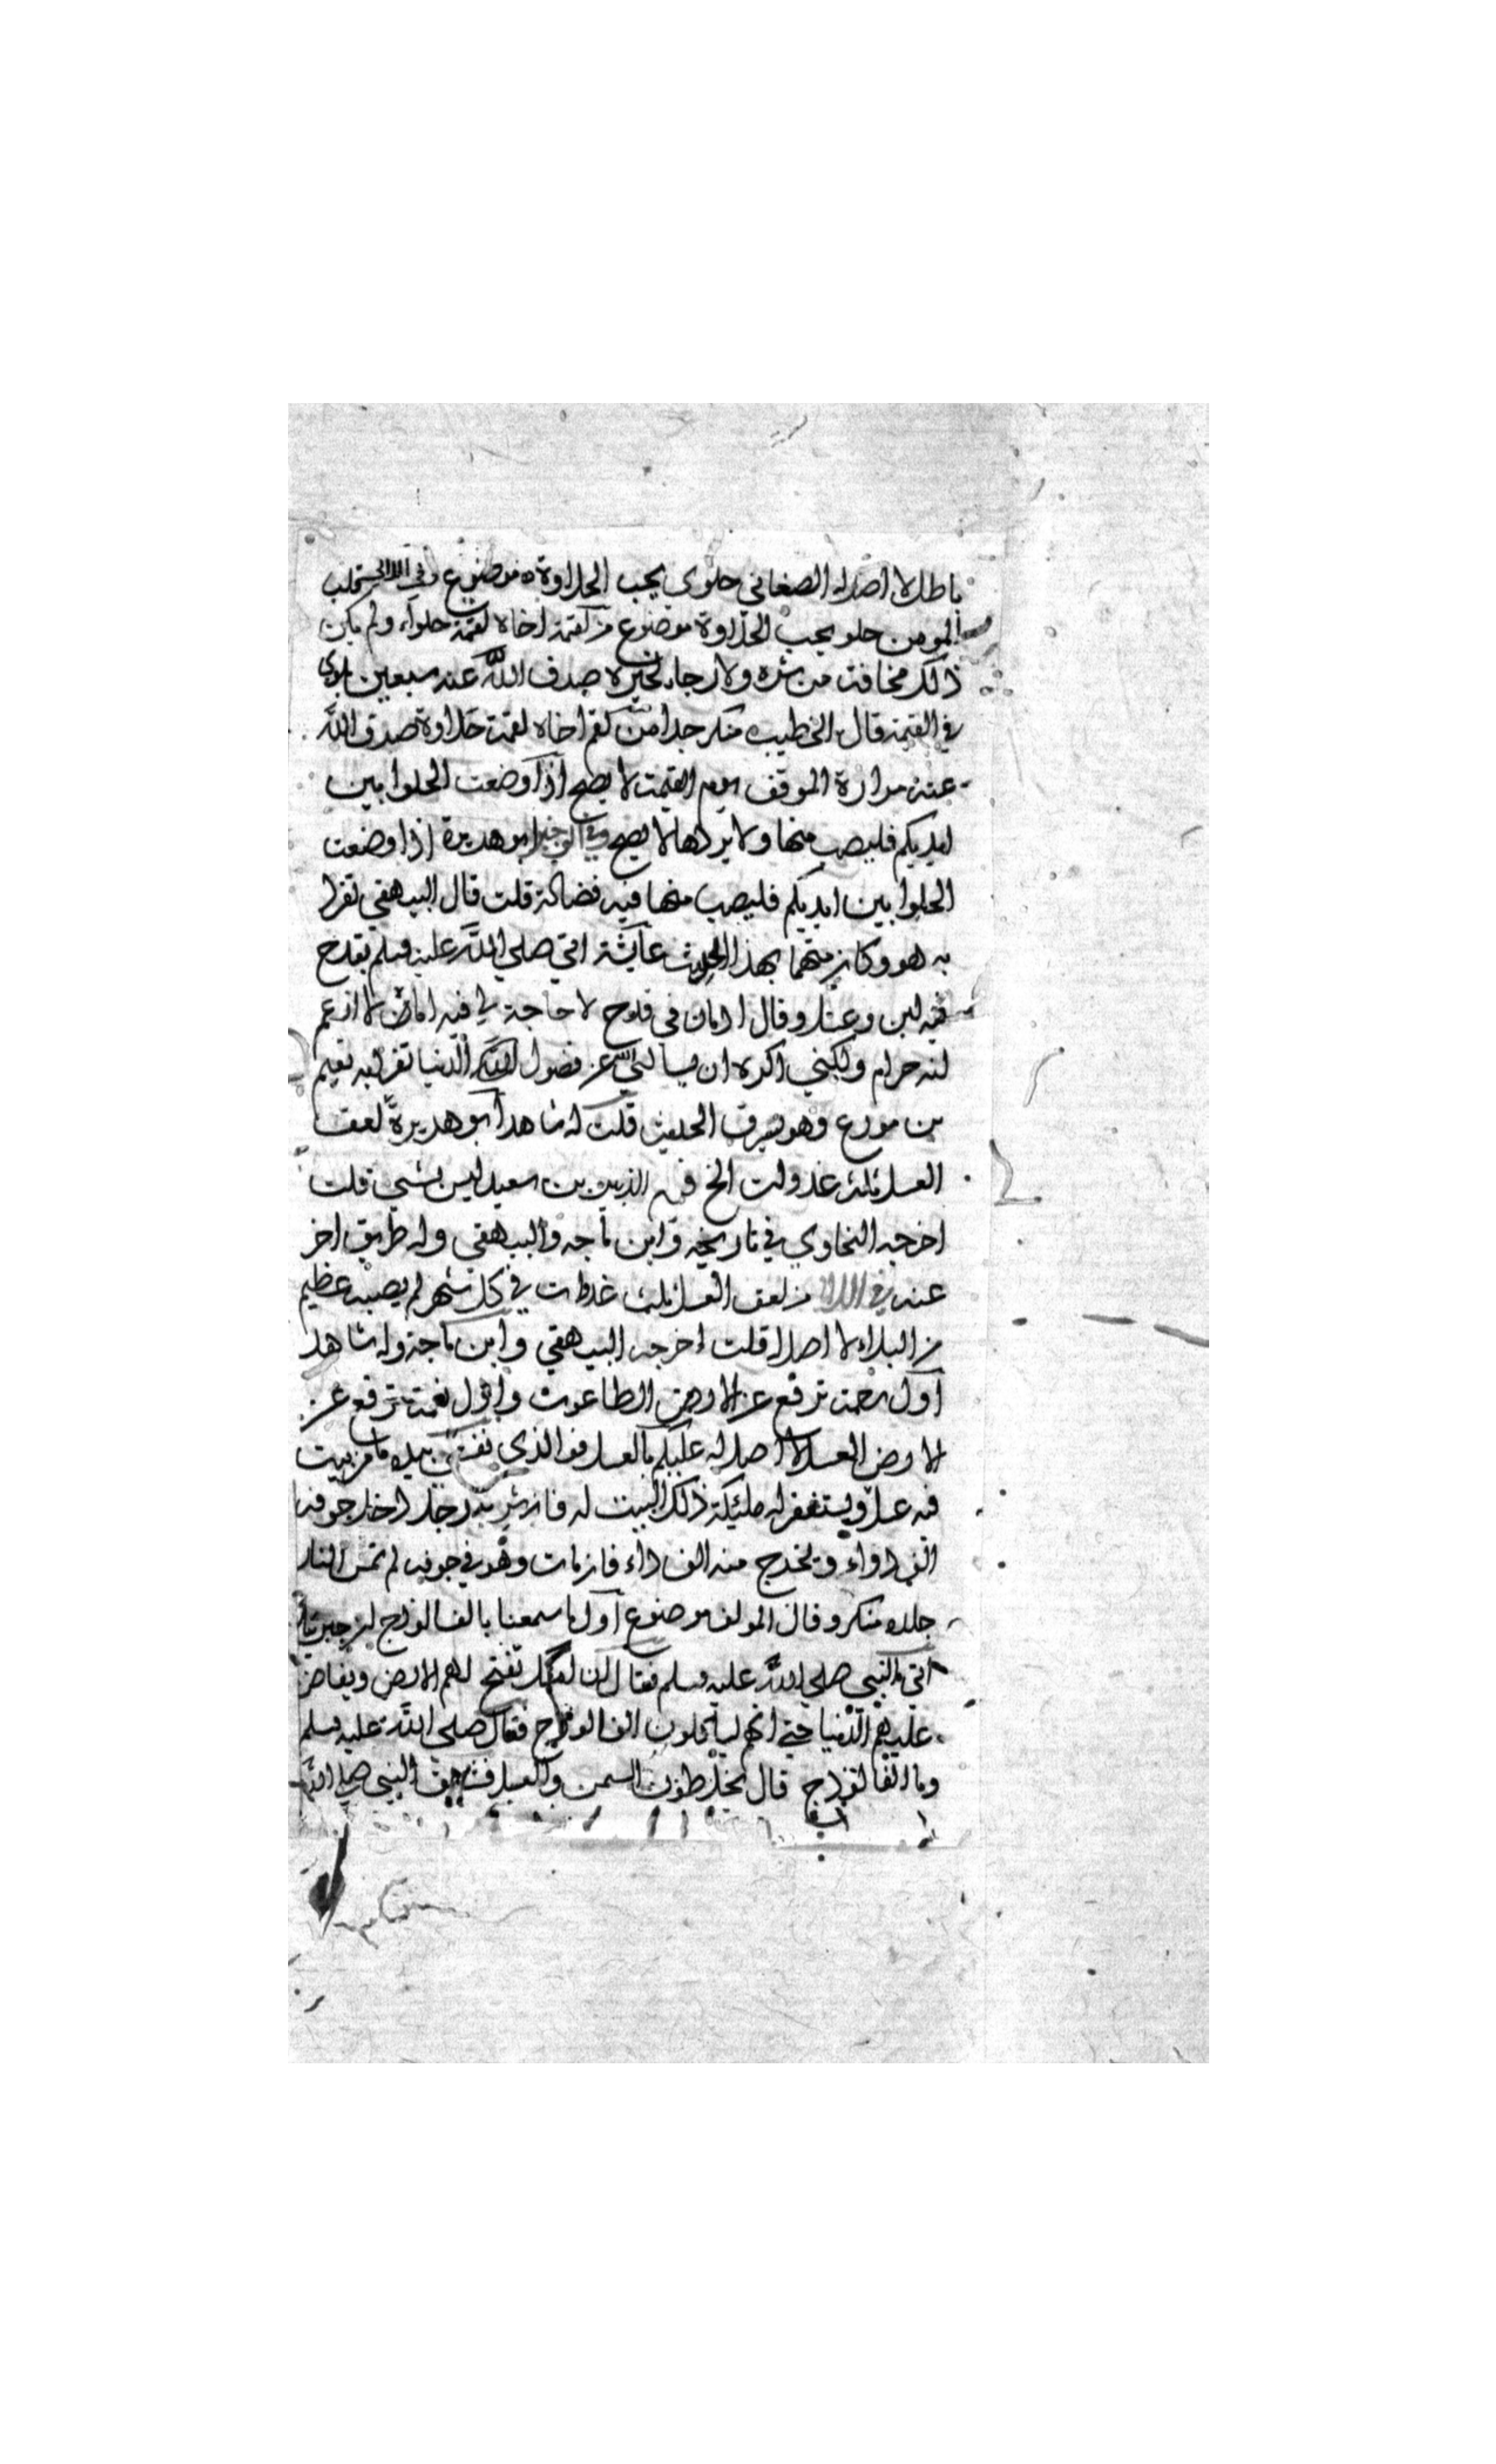 باطل لا اصل له الصغاني حلوى يحب الحلاوة موضوع وفي اللالي قلب
المومن حلو يحب الحلاوة موضوع من لقمة اخاه لقمة حلواء ولم يكن
ذلك مخافة من شره ولا رجاء لخيره صرف الله عنه سبعين بلوى
في القيمة قال الخطيب منكر جدا من لقم اخاه لقمة حلاوة صرف الله
عنه مرارة الموقف يوم القيمة لا يصح اذا وضعت الحلوا بين
ايديكم فليصب منها ولا يردها لا يصح وفي الوجيز ابو هريرة اذا وضعت
الحلوا بين ايديكم فليصب منها فيه فضالة قلت قال البيهقي تفرد
به هو وكان متهما بهذا الحديث عايشة اتي صلي الله عليه وسلم بقدح
فيه لبن وعسل وقال ادمان في قدح لا حاجة لي فيه اما اني لا ازعم
انه حرام ولكني اكره ان يسالني الله عن فضول الدنيا تفرد به نعيم
بن مورع وهو يسرق الحديث قلت له شاهد ابو هريرة لعق
العسل ثلث غدوات الخ فيه الزبير بن سعيد ليس بشي قلت
اخرجه البخاوي في تاريخه وابن ماجه والبيهقي وله طريق اخر
عنه في اللالي من لعق العسل ثلث غدوات في كل شهر لم يصبه عظيم
من البلاء لا اصل له قلت اخرجه البيهقي وابن ماجة وله شاهد
اول رحمة ترفع عن الارض الطاعون واول نعمة ترفع عن
الارض العسل لا اصل له عليكم بالعسل فوالذي نفسي بيده ما من بيت
فيه عسل ويستغفر له مليكة ذلك البيت له فان شربه رجل دخل جوفه
الف دواء ويخرج منه الف داء فان مات وهو في جوفه لم تمس النار
جلده منكر وقال المولف موضوع اول ما سمعنا بالفالوذج ان جبريل
اتي النبي صلي الله عليه وسلم فقال ان امتك تفتح لهم الارض ويفاض
عليهم الدنيا حتي انهم لياكلون الفالوذج فقال صلى الله عليه وسلم
وما الفالوذج قال يخلطون السمن والعسل فشهق النبي صلي الله